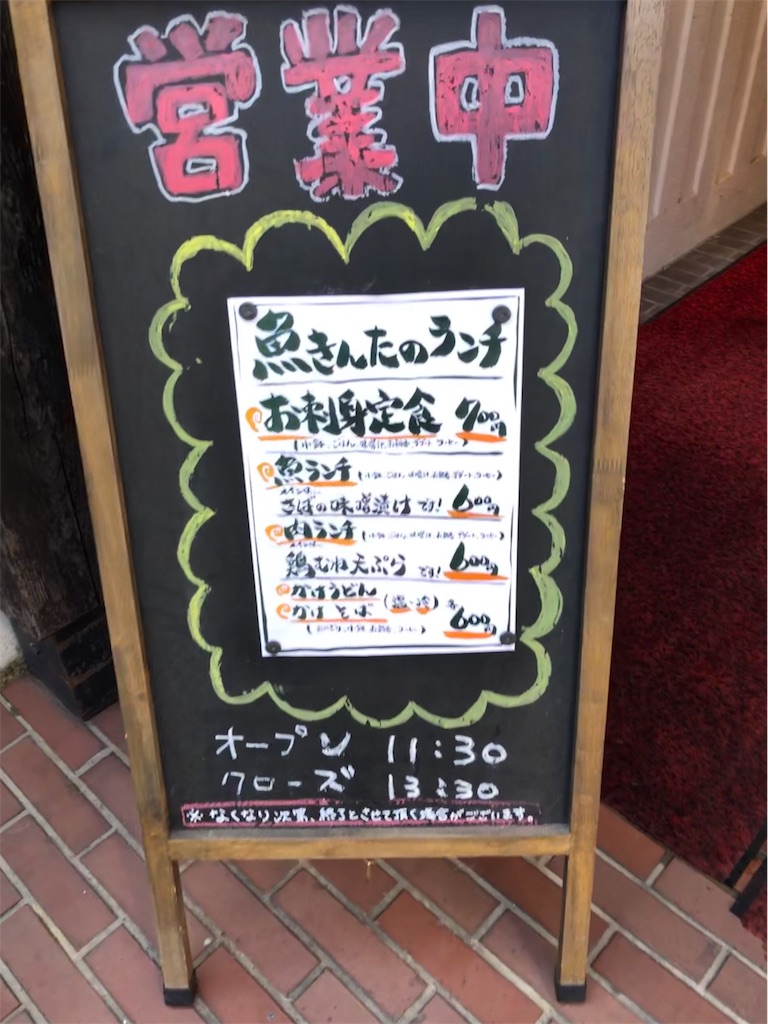 営業中
魚きんたのランチ
お刺身定食 700円
(小鉢、ごはん、味噌汁、お新香、デザート、コーヒー)
魚ランチ (小鉢、ごはん、味噌汁、お新香、デザート、コーヒー)
メインは
さばの味噌漬けです! 600円
肉ランチ (小鉢、ごはん、味噌汁、お新香、デザート、コーヒー)
メインは
鶏むね天ぷらです! 600円
かけうどん
かけそば (温・冷) 各600円
(おにぎり、小鉢、お新香、コーヒー)
オープン 11:30
クローズ 13:30
※なくなり次第、終了とさせて頂く場合がございます。